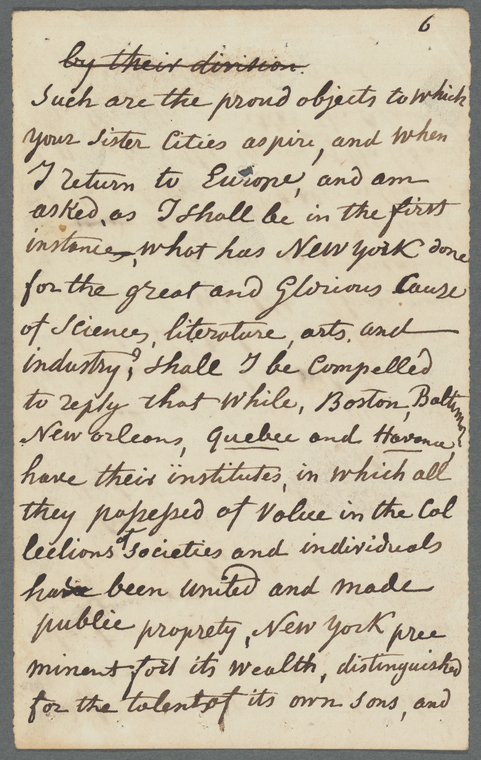 6
by their division.
Such are the proud objects to which
your Sister Cities aspire, and when
I return to Europe, and am
asked, as I shall be in the first
instance, what has New York done
for the great and Glorious Cause
of Sciences, literature, arts, and
industry? Shall I be Compelled
to reply that While, Boston, Baltimore
New orleans, Quebec and Havana,
have their institutes, in which all
they possessed of Value in the Col
lections of Societies and individuals
have been united and made
public proprety, New York pree
minent for its wealth, distinguished
for the talents of its own sons, and